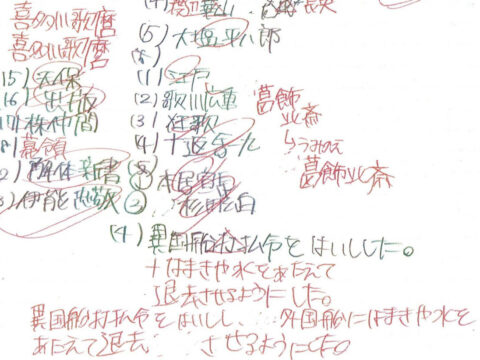 喜多川歌麿
喜多川歌麿
(5) 大塩平八郎
(15) 天保
(16) 出版
株仲間
幕領
解体新書
伊能忠敬
(1) 江戸
(2) 歌川広重
(3) 狂歌
(4) 十返舎一九
① 本居宣長
② 杉田玄白
葛飾
北斎
葛飾北斎
(4) 異国船打払令をはいしした。
+なまきや水をあたえて
退去させるようにした。
異国船打払令をはいしし、外国船にはまきや水を
あたえて退去 させるようにした。